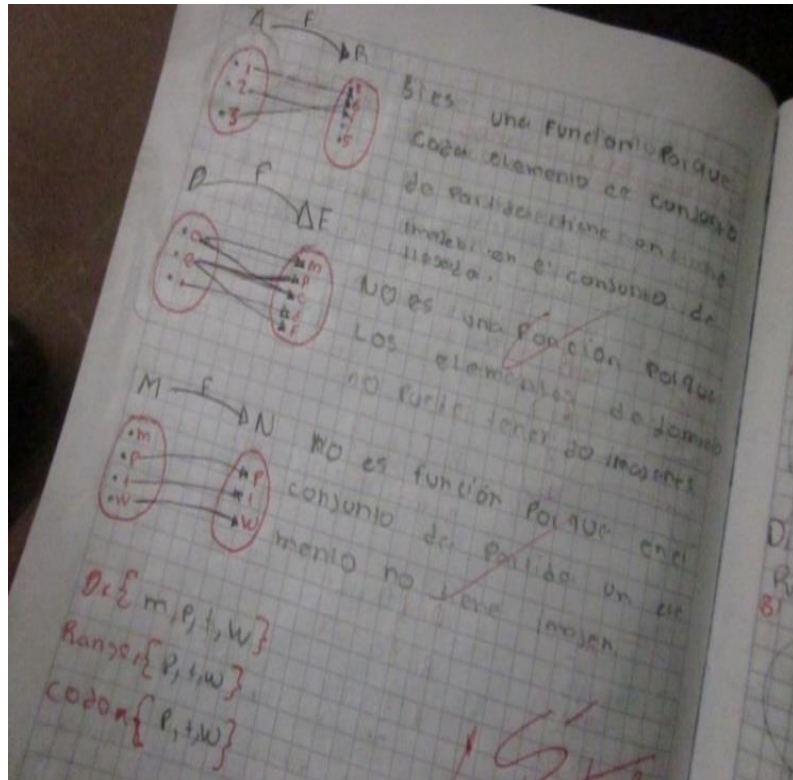 A F B
1
2
3
5
Si es una funcion Porque
cada elemento de conjunto
de Partida tiene un
imagen en el conjunto de
llegada.
F F
a
e
m
P
c
F
NO es una función Porque
Los elementos de dominio
no Puede tener do imajenes
M F N
m
P
t
w
P
t
w
no es función Porque en el
conjunto de Partida un ele
mento no tiene imajen.
D:{m,P,t,w}
Rango:{P,t,w}
codom{P,t,w}